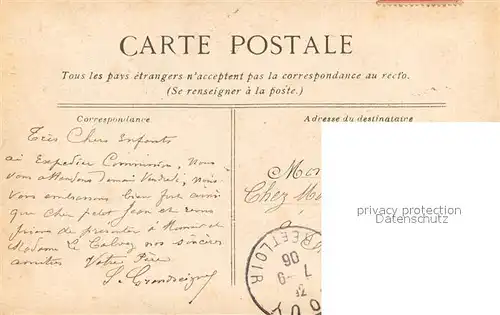 CARTE POSTALE
Tous les pays étrangers n'acceptent pas la correspondance au recto.
(Se renseigner à la poste.)
Correspondance
Adresse du destinataire
Très Chers Enfants
ai Expédier Commission, Nous
vous attendons demain Vendredi, nous
vous embrassons bien fort ainsi
que cher petit Jean et vous
prions de présenter à Monsieur et
Madame Le Calvez nos sincères
amitiés Votre Père
Mon
Chez M
privacy protection
Datenschutz
EET LOIR
7-9
06